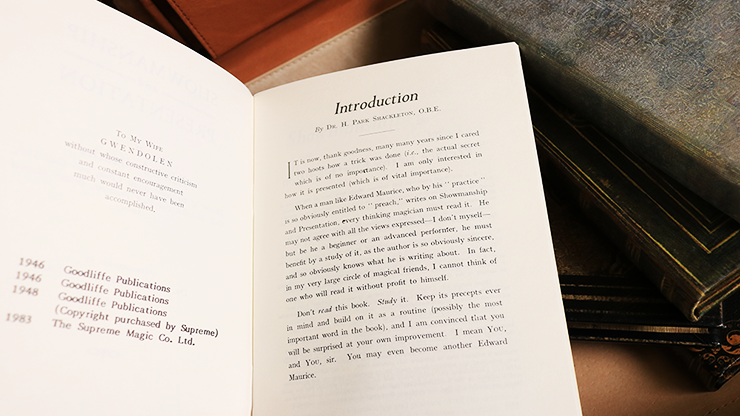 To My Wife
GWENDOLEN
without whose constructive criticism
and constant encouragement
much would never have been
accomplished.
1946 Goodliffe Publications
1946 Goodliffe Publications
1948 Goodliffe Publications
(Copyright purchased by Supreme)
1983 The Supreme Magic Co. Ltd.
Introduction
By Dr. H. Park Shackleton, O.B.E.
IT is now, thank goodness, many many years since I cared
two hoots how a trick was done (i.e., the actual secret
which is of no importance). I am only interested in
how it is presented (which is of vital importance).
When a man like Edward Maurice, who by his "practice"
is so obviously entitled to "preach," writes on Showmanship
and Presentation, every thinking magician must read it. He
may not agree with all the views expressed—I don't myself—
but be he a beginner or an advanced performer, he must
benefit by a study of it, as the author is so obviously sincere,
and so obviously knows what he is writing about. In fact,
in my very large circle of magical friends, I cannot think of
one who will read it without profit to himself.
Don't read this book. Study it. Keep its precepts ever
in mind and build on it as a routine (possibly the most
important word in the book), and I am convinced that you
will be surprised at your own improvement. I mean You,
and You, sir. You may even become another Edward
Maurice.